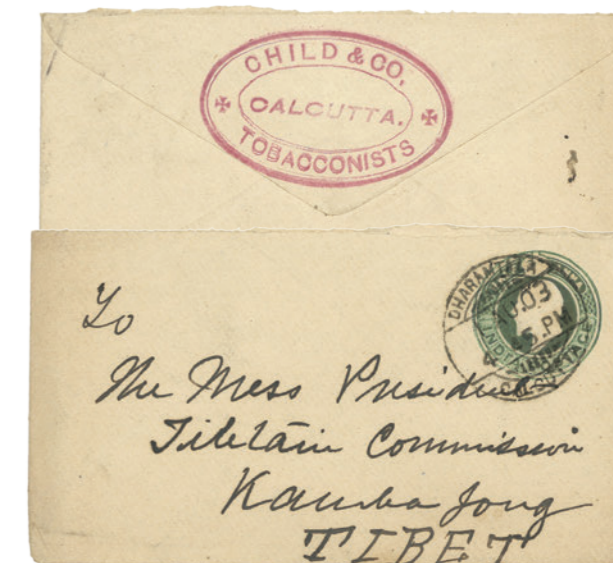 CHILD & CO.
CALCUTTA.
TOBACCONISTS
DHARAMTALA
.03
5.PM
INDIA POSTAGE
To
The Mess President
Tibetain Commission
Kamba Jong
TIBET